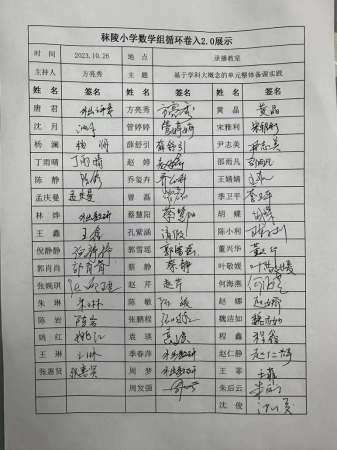 秣陵小学数学组循环卷入2.0展示
时间 2023.10.26 地点 录播教室
主持人 方亮秀 主题 基于学科大概念的单元整体备课实践
姓名 签名 姓名 签名 姓名 签名
唐君 外出听课 方亮秀 方亮秀 黄晶 黄晶
沈月 沈月 管婷婷 管婷婷 宋雅利 宋雅利
杨澜 杨澜 薛舒引 薛舒引 尹志美 尹志美
丁雨晴 丁雨晴 赵婷 赵婷 邵雨凡 邵雨凡
陈静 陈静 乔玺卉 王婧婧
孟庆曼 孟庆曼 曾磊 曾磊 季卫平 季卫平
林烨 外出教研 蔡慧阳 蔡慧阳 胡蝶 胡蝶
王鑫 王鑫 孔紫滢 陈小利 陈小利
倪静静 倪静静 郭雪瑶 郭雪瑶 董兴华
郭肖肖 郭肖肖 蔡静 蔡静 叶敬媛 叶敬媛
张婉琪 赵芹 赵芹 何海燕 何海燕
朱琳 朱琳 陈敏 陈敏 赵娜 赵娜
陈岩 陈岩 张鹏程 张鹏程 魏洁如 魏洁如
姚红 姚红 袁瑛 袁瑛 程鑫 程鑫
王琳 王琳 李春萍 外出教研 赵仁静 赵仁静
张惠贤 张惠贤 周梦 外出教研 王菲 王菲
周发强 朱后云 朱后云
沈俊